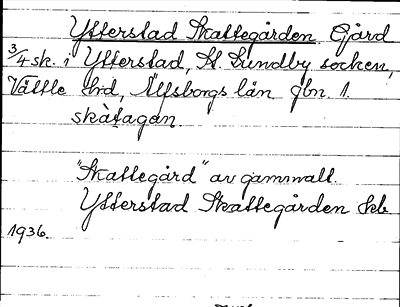 Ytterstad Skattegården Gård
3/4 sk. i Ytterstad, St. Lundby socken,
Vättle hrd, Älfsborgs län gbn. 1.
skàtagan
"Skattegård" av gammalt.
Ytterstad Skattegården
1936.